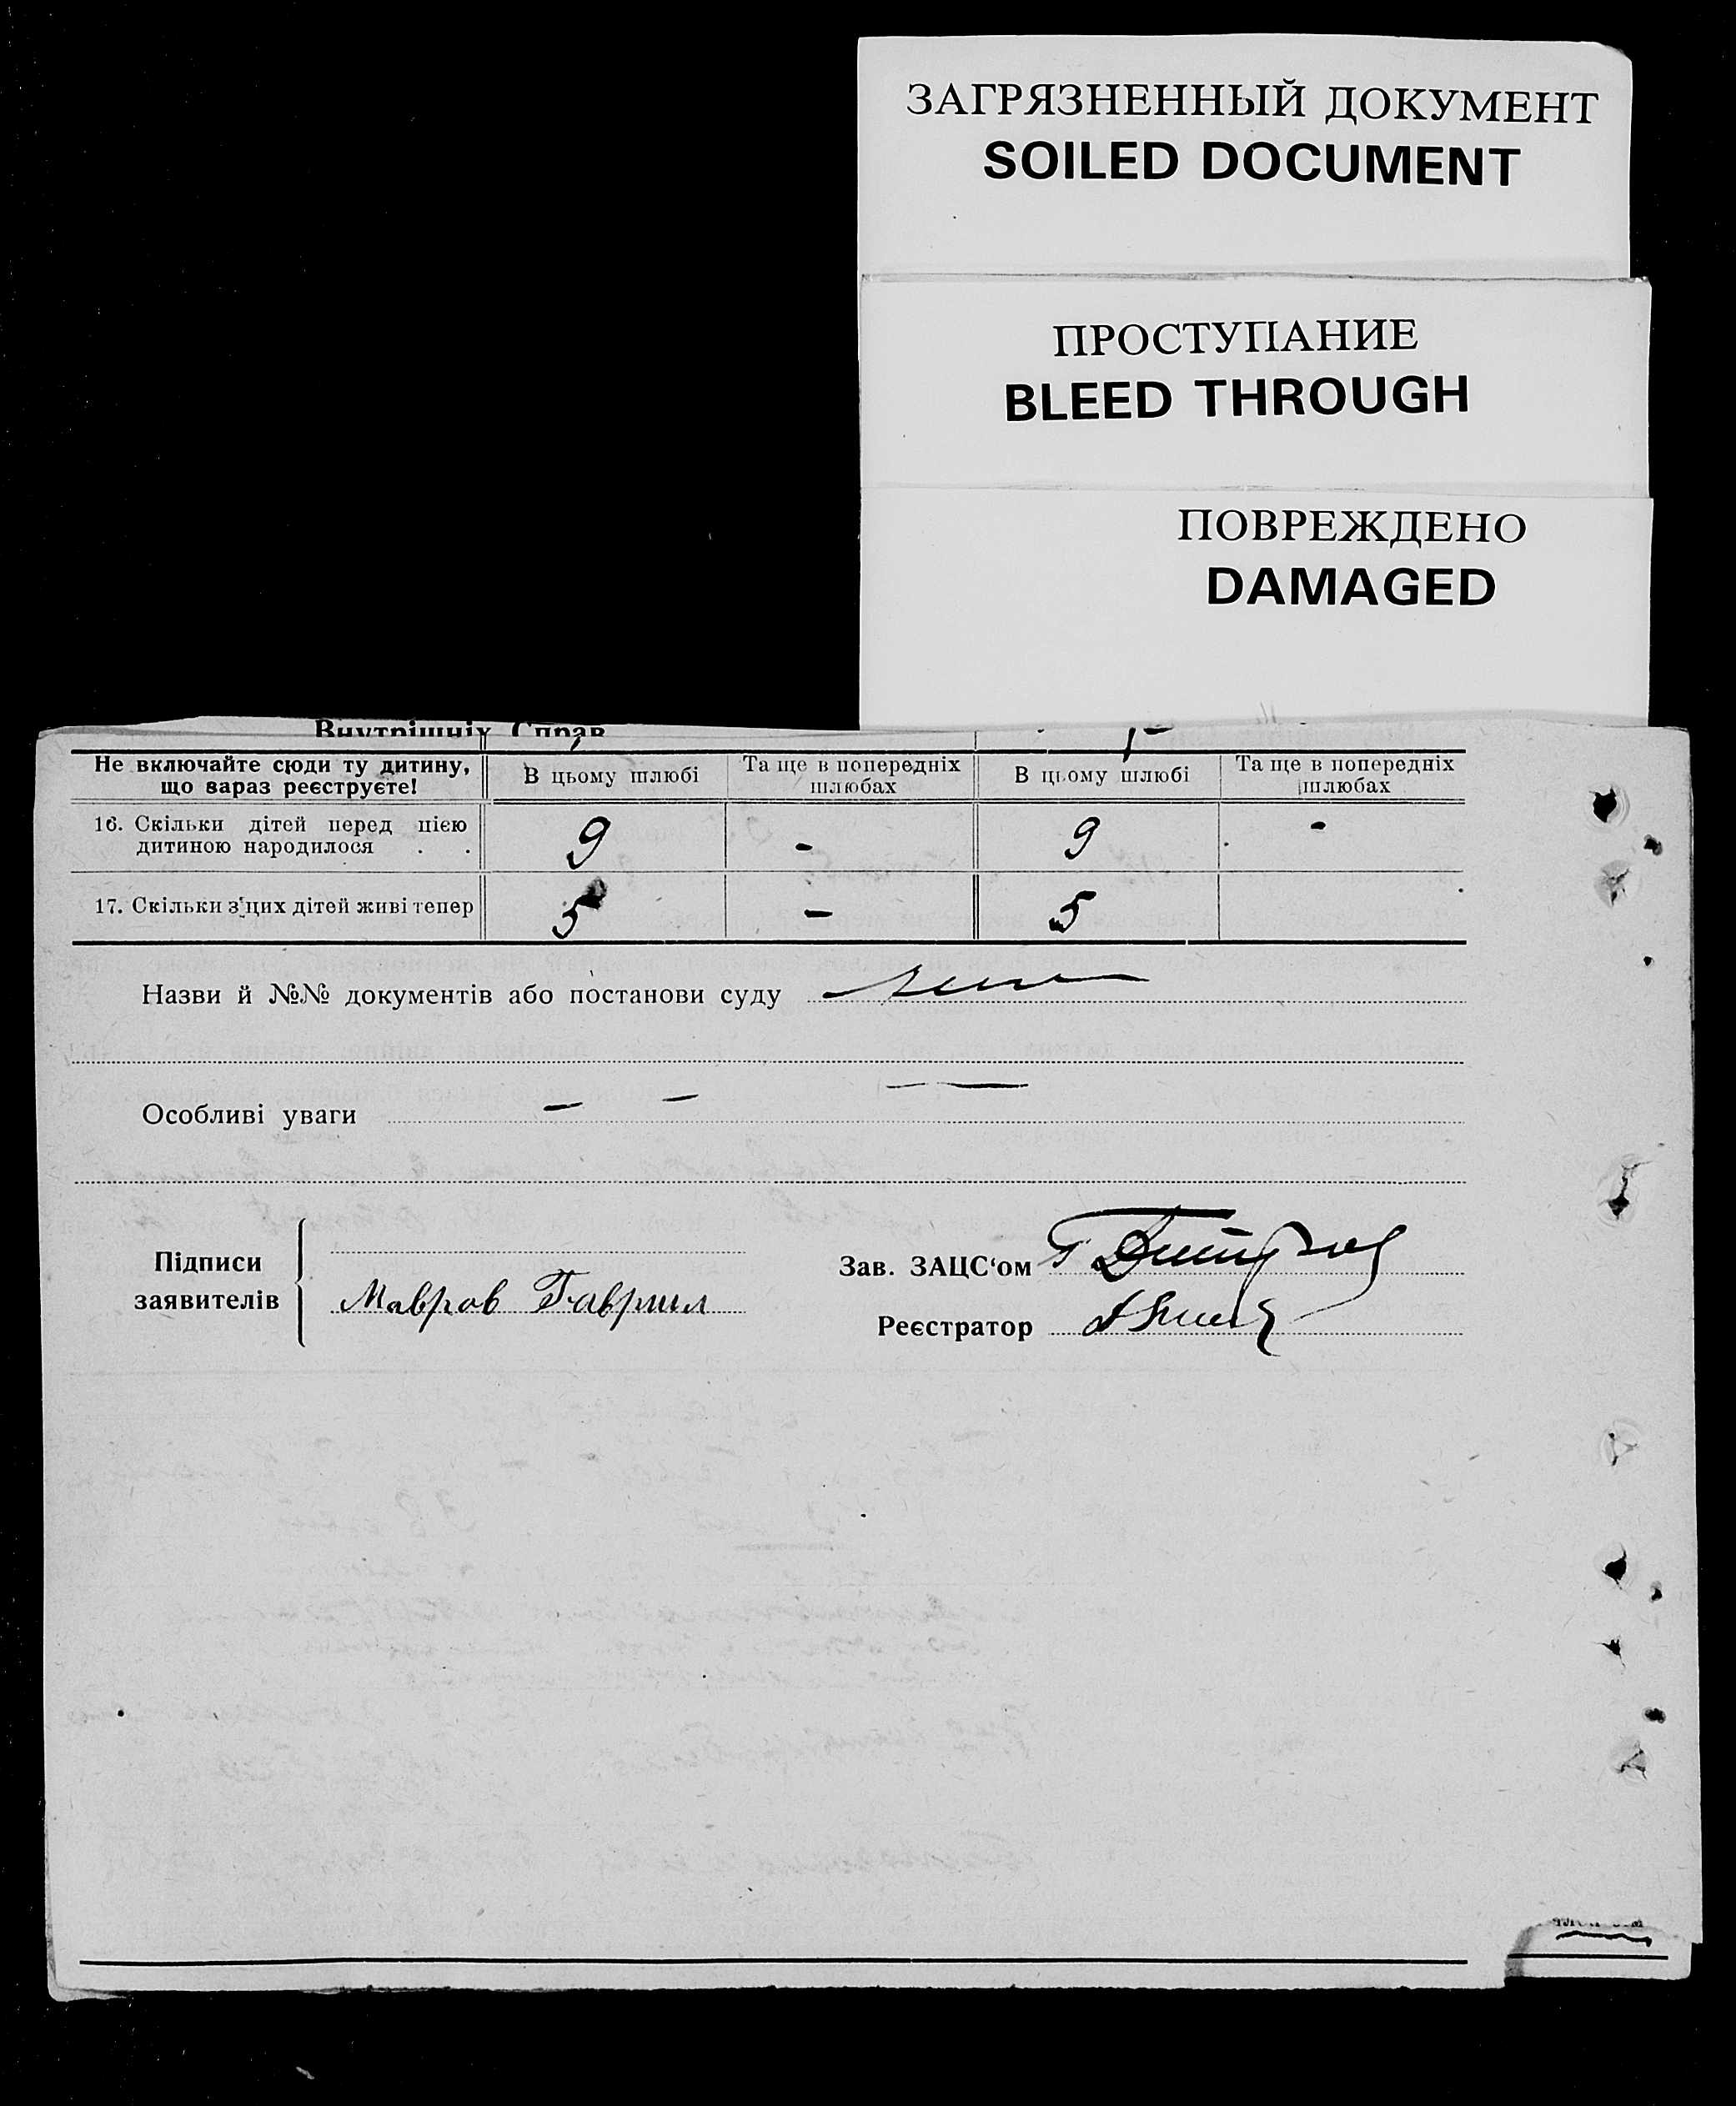 ЗАГРЯЗНЕННЫЙ ДОКУМЕНТ
SOILED DOCUMENT
ПРОСТУПАНИЕ
BLEED THROUGH
ПОВРЕЖДЕНО
DAMAGED
Внутрішніх Справ
Не включайте сюди ту дитину, що вараз реєструєте!
В цьому шлюбі
Та ще в попередніх шлюбах
В цьому шлюбі
Та ще в попередніх шлюбах
16. Скільки дітей перед цією дитиною народилося . . 9 - 9 -
17. Скільки з'цих дітей живі тепер 5 - 5
Назви й №№ документів або постанови суду
Особливі уваги - -
Підписи заявителів
Мавров Гаврил
Зав. ЗАЦС‘ом
Реєстратор